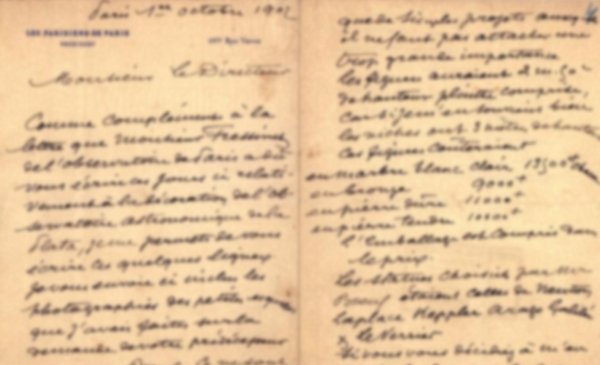 Paris 1er octobre 190
LES PARISIENS DE PARIS
Monsieur le Directeur
Comme complément à la
lettre que Monsieur
de l'observatoire de Paris a
vous écrire ces jours ci relati-
vement à la décoration de l'ob-
servatoire astronomique de la
Plata, je me permets de vous
écrire ces quelques lignes
Je vous envoie ci inclus les
photographies des petites
que j'avais faites sur la
demande de votre prédécesseur
que de simples projets auxquels
il ne faut pas attacher une
trop grande importance
les figures auraient 2 m. 50
de hauteur plinthe comprise,
car si je m'en souviens bien
les niches ont 3 mètres de hauteur
Ces figures coûteraient
en marbre blanc clair 13500
en bronze 9000
en pierre dure 11000
en pierre tendre 10000
l'Emballage est compris dans
le prix
Les statues choisies par Mr
étaient celles de Newton,
Laplace Keppler Arago Galilée
& le Verrier
Si vous vous décidiez à m'en